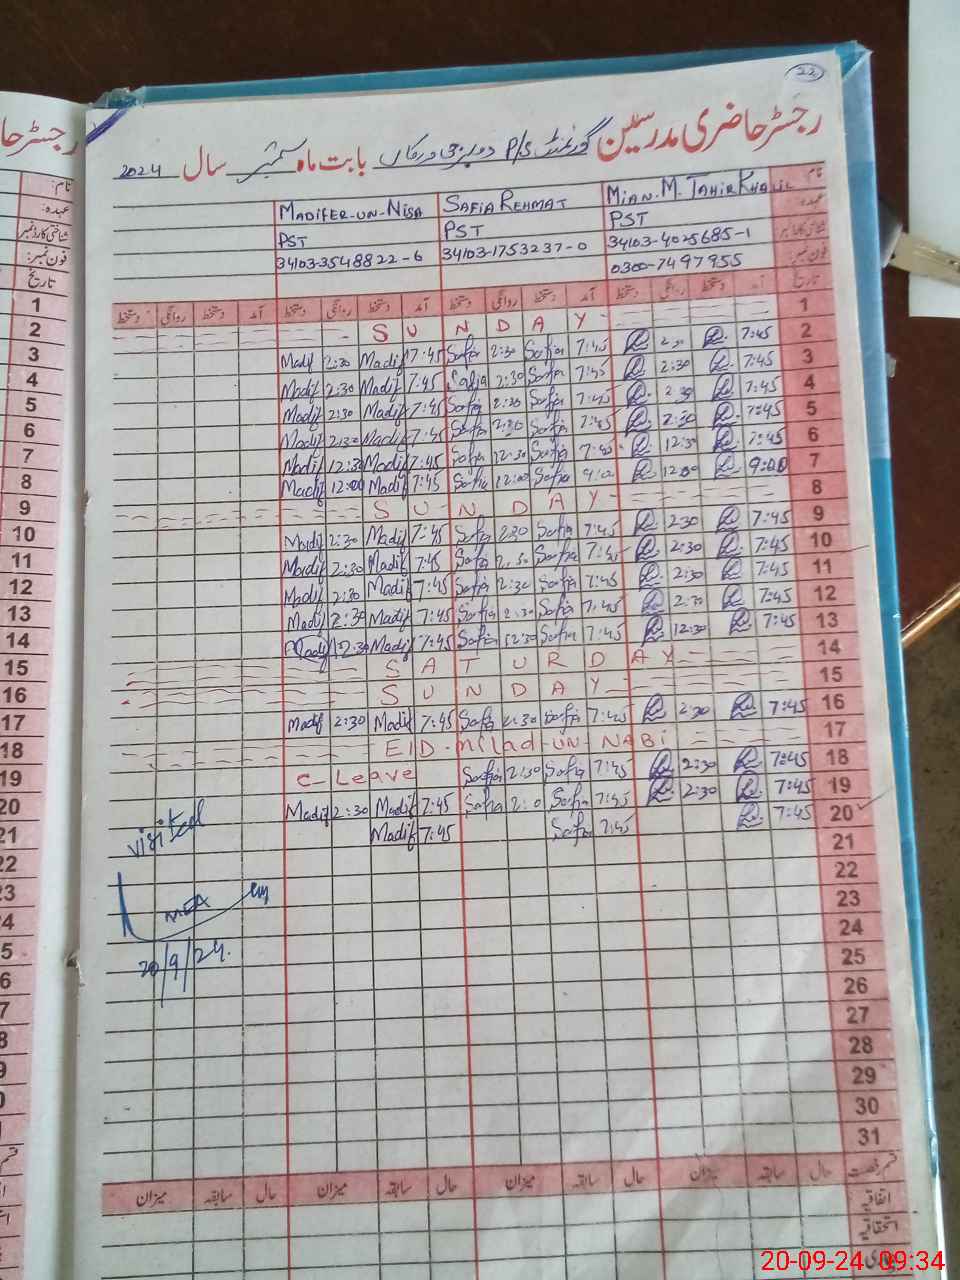 22
رجسٹر حاضری مدرسین گورنمنٹ P/S بابت ماہ ستمبر سال 2024
نام:
MADIFER-UN-NISA SAFIA REHMAT MIAN. M. TAHIR KHALIL
عہدہ:
PST PST PST
شناختی کارڈ نمبر
34103-3548822-6 34103-1753237-0 34103-4025685-1
فون نمبر:
0300-7497955
تاریخ آمد دستخط روانگی دستخط آمد دستخط روانگی دستخط آمد دستخط روانگی دستخط آمد دستخط روانگی دستخط
1 SUNDAY
2 Madif 2:30 Madif 7:45 Safia 2:30 Safia 7:45 2:30 7:45
3 Madif 2:30 Madif 7:45 Safia 2:30 Safia 7:45 2:30 7:45
4 Madif 2:30 Madif 7:45 Safia 2:30 Safia 7:45 2:30 7:45
5 Madif 2:30 Madif 7:45 Safia 2:30 Safia 7:45 2:30 7:45
6 Madif 12:30 Madif 7:45 Safia 12:30 Safia 7:45 12:30 7:45
7 Madif 12:00 Madif 7:45 Safia 12:00 Safia 9:00 12:00 9:00
8 SUNDAY
9 Madif 2:30 Madif 7:45 Safia 2:30 Safia 7:45 2:30 7:45
10 Madif 2:30 Madif 7:45 Safia 2:30 Safia 7:45 2:30 7:45
11 Madif 2:30 Madif 7:45 Safia 2:30 Safia 7:45 2:30 7:45
12 Madif 2:30 Madif 7:45 Safia 2:30 Safia 7:45 2:30 7:45
13 Madif 12:30 Madif 7:45 Safia 12:30 Safia 7:45 12:30 7:45
14 SATURDAY
15 SUNDAY
16 Madif 2:30 Madif 7:45 Safia 2:30 Safia 7:45 2:30 7:45
17 EID-Milad-UN-NABi
18 C-Leave Safia 2:30 Safia 7:45 2:30 7:45
19 Madif 2:30 Madif 7:45 Safia 2:0 Safia 7:45 2:30 7:45
20 Madif 7:45 Safia 7:45 7:45
visited
21
22
23
MEA
24
25
20/9/24.
26
27
28
29
30
31
قسم رخصت حال سابقہ میزان حال سابقہ میزان حال سابقہ میزان حال سابقہ میزان
اتفاقیہ
استحقاقیہ
20-09-24 09:34